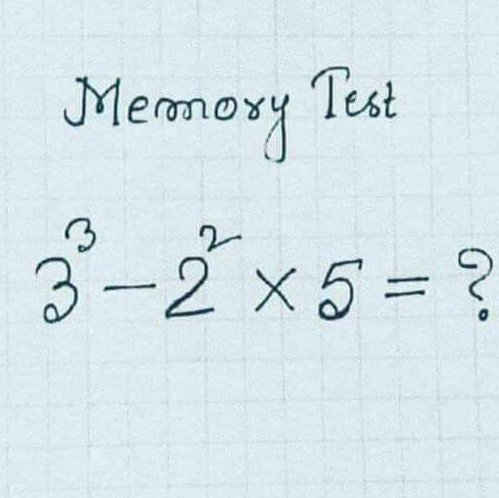 Memory Test
3³ - 2² × 5 = ?